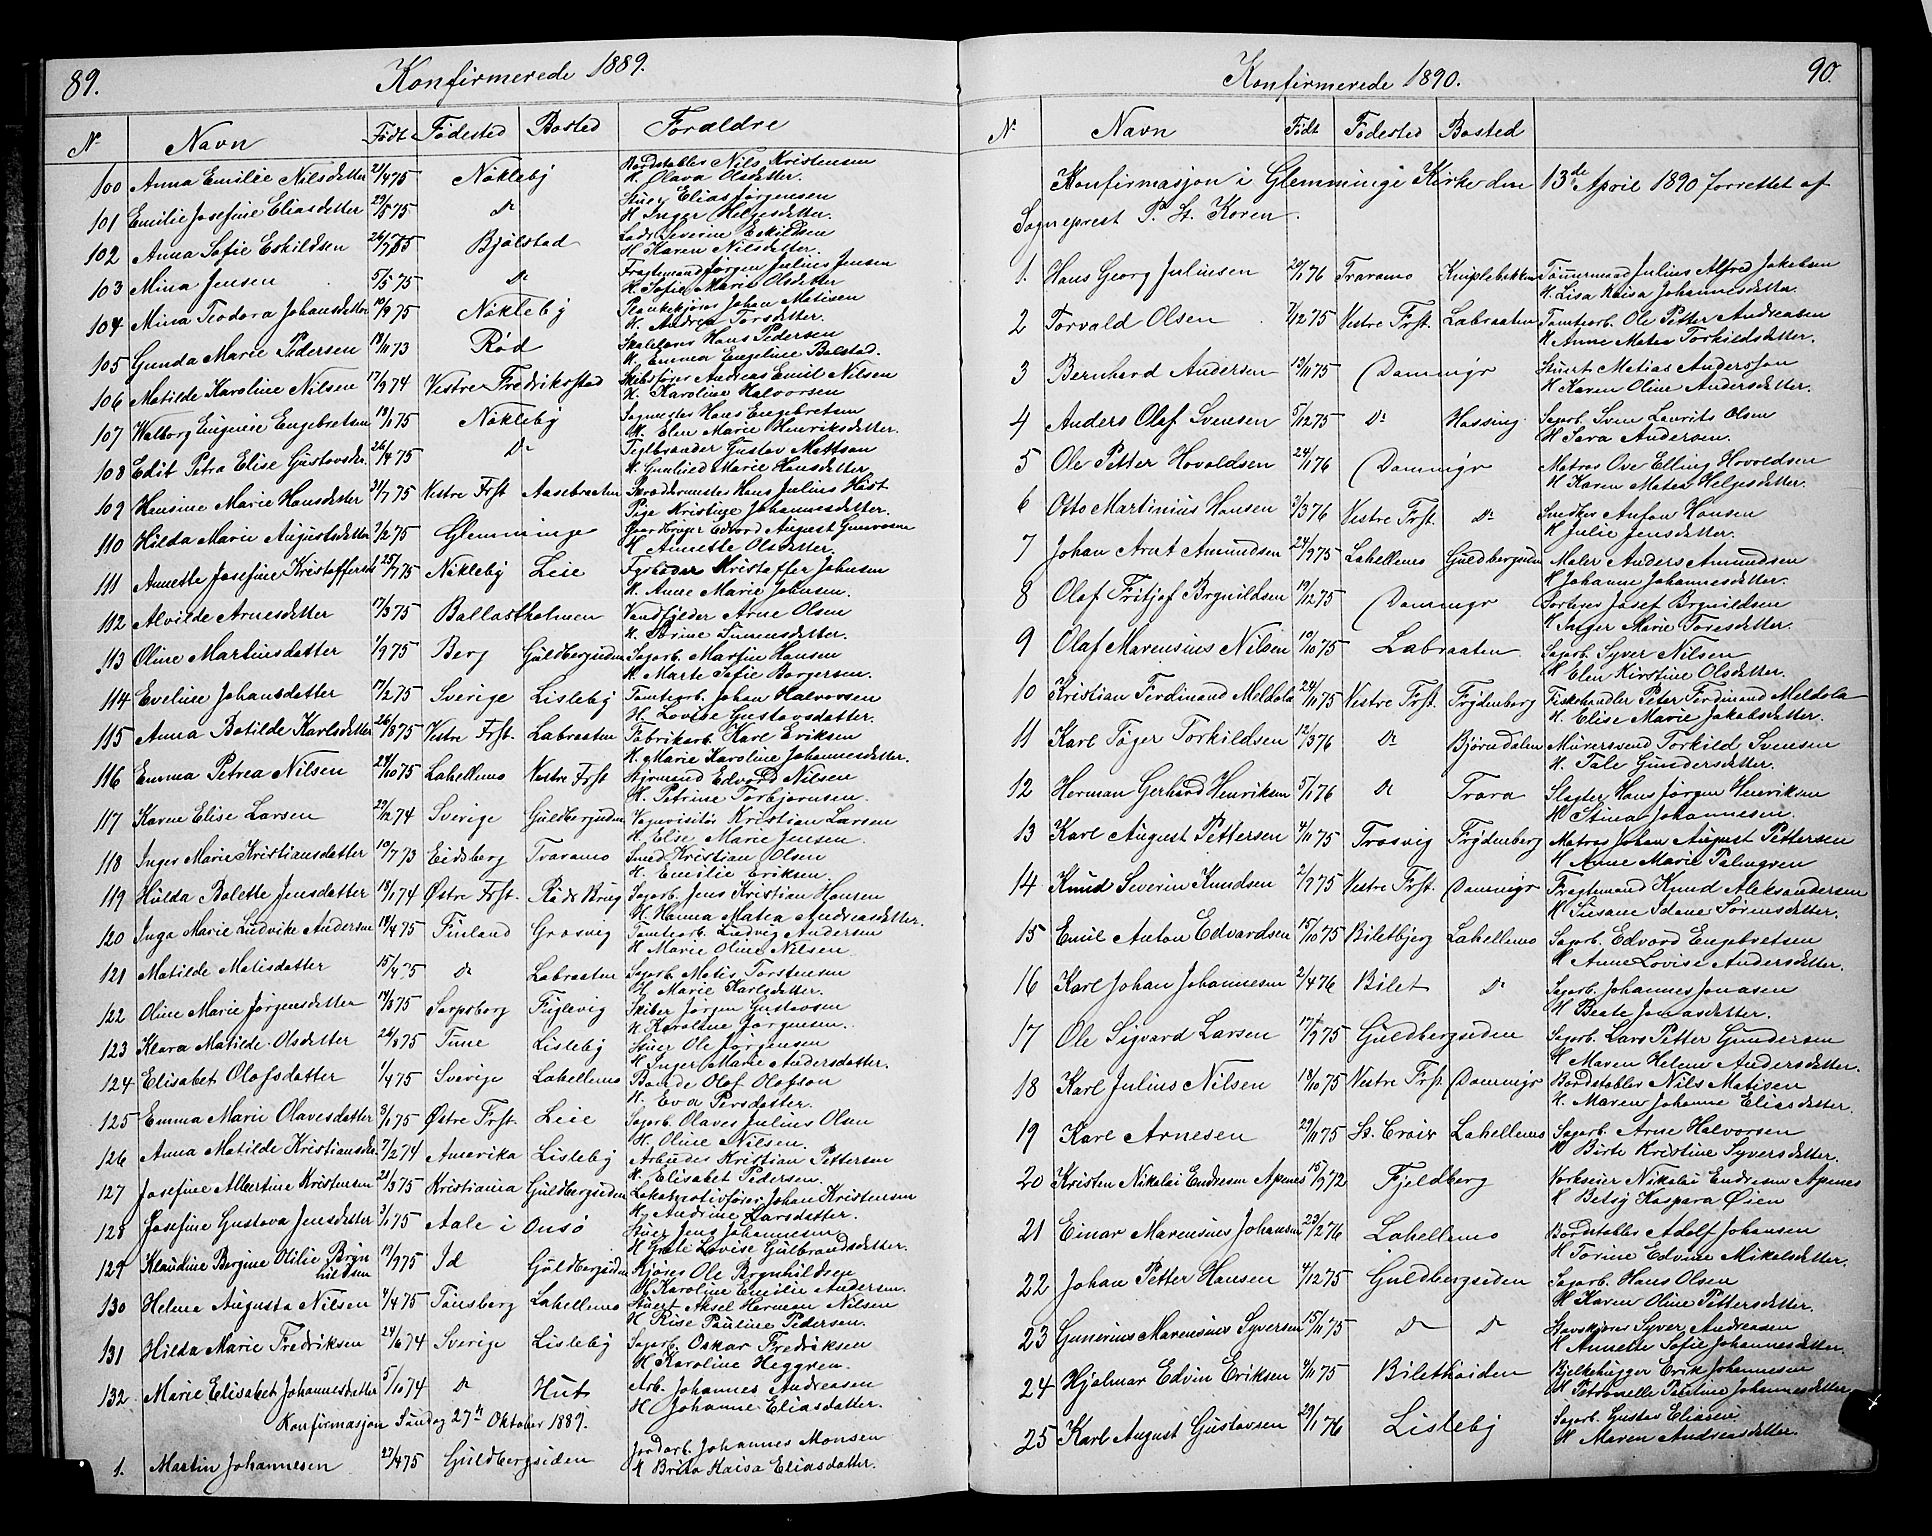 89.
Konfirmerede 1889.
No Navn Født Fødested Bosted Foraldre
100 Anna Emilie Nilsdetter 21/4 75 Nøkleby Bordstabler Nils Kristensen
H. Olava Olsdetter.
101 Emilie Josefine Eliasdetter 29/5 75 Do Stuer Elias Jørgensen
H. Inger Helgesdetter.
102 Anna Sofie Eskildsen 26/7 75 Bjølstad Lods Severin Eskildsen
H. Karen Nilsdetter.
103 Mina Jensen 5/5 75 Do Fragtemand Jørgen Julius Jensen
H. Sofie Marie Olsdetter
104 Mina Teodora Johansdetter 10/9 75 Nøkleby Plankekjører Johan Matisen
H. Andrea Torsdetter.
105 Gunda Marie Pedersen 19/11 73 Rød Hans Pedersen
H. Emma Engeline Bolstad.
106 Matilde Karoline Nilsen 17/9 74 Vestre Fredrikstad Skibsfører Andreas Emil Nilsen
H. Karoline Halvorsen
107 Walborg Eugenie Engebretsen 18/1 75 Nøkleby Sagmester Hans Engebretsen
H. Elen Marie Henriksdetter.
108 Edit Petra Elise Gustavsdr. 26/4 75 Do Teglbrander Gustav Mattson
H. Gunlied Marie Hansdetter.
109 Hansine Marie Hansdetter 31/7 75 Vestre Frst Aasebraaten Skræddermester Hans Julius Høst
Pige Kristine Johannesdetter.
110 Hilda Marie Augustsdetter 7/2 75 Glemminge Gaardbruger Edvard August Gunvorsen
H. Annette Olsdetter.
111 Annette Josefine Kristoffersen 25/7 75 Nøkleby Leie Fyrbøder Kristoffer Johnsen
H. Anne Marie Johnsen.
112 Alvilde Arnesdetter 17/3 75 Ballastholmen Vandfylder Arne Olsen
H. Stine
113 Oline Martinsdatter 1/9 75 Berg Guldbergsiden Sagarb. Martin Hansen
H. Marte Sofie Borgersen.
114 Eveline Johansdatter 17/2 75 Sverige Lisleby Tomtearb. Johan Halvorsen
H. Lovise Gustavsdatter.
115 Anna Botilde Karlsdetter 26/8 75 Vestre Frst. Labraaten Fabrikarb. Karl Eriksen
H. Marie Karoline Johannesdetter.
116 Emma Petrea Nilsen 29/10 75 Lahellemo Vestre Frst Styrmand Edvard Nilsen
H. Petrine Torbjørnsen.
117 Karen Elise Larsen 29/12 74 Sverige Guldbergsiden Vognvisitør Kristian Larsen
H. Elise Marie Jensen.
118 Inger Marie Kristiansdatter 10/7 73 Eidsberg Traramo Smed Kristian Olsen
H. Emilie Eriksen.
119 Hilda Bolette Jensdatter 18/1 74 Østre Frst. Røds Brug Sagarb. Jens Kristian Hansen
H. Hanna Matea Andreasdetter.
120 Inga Marie Ludvike Andersen 18/4 75 Finland Grosvig Tomtearb. Ludvig Andersen
H. Marie Oline Nilsen.
121 Matilde Matisdatter 15/4 75 Do Labraaten Sagarb. Matis Torstensen
H. Marie Karlsdetter.
122 Oline Marie Jørgensdetter 14/3 75 Sarpsborg Fuglevig Skiber Jørgen Gustavsen
H. Karoline Jørgensen.
123 Klara Matilde Olsdetter 26/8 75 Tune Lisleby Stuer Ole Jørgensen
H. Inger Marie Andersdatter.
124 Elisabet Olofsdatter 1/4 75 Sverige Lahellemo Bonde Olof Olofson
H. Eva Persdatter.
125 Emma Marie Olavesdatter 3/1 75 Østre Frst. Leie Sagarb. Olaves Julius Olsen
H. Oline Nilsen.
126 Anna Matilde Kristiansdr. 7/2 74 Amerika Lisleby Arbeider Kristian Pettersen
H. Elisabet Pedersen.
127 Josefine Albertine Kristensen 21/3 75 Kristiania Guldbergsiden Lokomotivfører Johan Kristensen
H. Andrine Larsdatter.
128 Josefine Gustava Jensdetter 3/1 75 Aale i Onsø Stuer Jens Johannesen
H. Grete Lovise Gulbrandsdetter.
129 Klaudine Bergine Otilie Bryn
hildsen 19/9 75 Id Guldbergsiden Kjører Ole Brynhildsen
H. Karoline Emilie Andersen.
130 Helma Augusta Nilsen 4/4 75 Tønsberg Lahellemo Stuert Aksel Herman Nilsen
H. Rise Pauline Pedersen.
131 Hilda Marie Fredriksen 24/6 74 Sverige Lisleby Sagarb. Oskar Fredriksen
H. Karoline Heggren.
132 Marie Elisabet Johannesdetter 5/10 74 Do Hut Arb. Johannes Andreasen
H. Johanne Eliasdatter.
Konfirmasjon Søndag 27de Oktober 1889.
1. Martin Johannesen 27/4 75 Guldbergsiden Jordarb. Johannes Monsen
H Brita Kaisa Eliasdatter.
Konfirmerede 1890.
90.
No Navn Født Fødested Bosted
Konfirmasjon i Glemminge Kirke den 13de April 1890 forrettet af
Sogneprest P. St. Koren.
1. Hans Georg Juliusen 20/1 76 Traramo Kniplebakken Tømmermand Julius Alfred Jakobsen
H. Lisa Kaisa Johannesdetter
2 Torvald Olsen 7/12 75 Vestre Frst. Labraaten Tomtearb. Ole Petter Andreasen
H Anne Matea Torkildsdetter.
3 Bernhard Andersen 13/11 75 Dammyr Stuert Matias Anderssøn
H Karen Oline Andersdetter.
4 Anders Olaf Svensen 5/12 75 Do Hassing Sagarb. Sven Laurits Olsen
H Sara Andersen.
5 Ole Petter Hovaldsen 24/1 76 Dammyr Matros Ove Elling Hovaldsen
H Karen Matea Helgesdetter.
6 Otto Martinius Hansen 3/3 76 Vestre Frst. Do Snedker Anton Hansen
H Julie Jensdetter.
7 Johan Arnt Amundsen 24/9 75 Lahellemo Guldbergsiden Maler Anders Amundsen
H Johanne Johannesdetter.
8 Olaf Fritjof Brynildsen 19/12 75 Dammyr Sorterer Josef Brynildsen
H Inger Marie Toresdetter.
9 Olaf Marensius Nilsen 10/10 75 Labraaten Sagarb. Syver Nilsen
H Elen Kirstine Olsdetter.
10 Kristian Ferdinand Meldola 29/11 75 Vestre Frst. Frydenberg Fiskehandler Peter Ferdinand Meldola
H. Elise Marie Jakobsdetter.
11 Karl Tøger Torkildsen 12/3 76 Do Bjørndalen Murersvend Torkild Svensen
H. Tale Gundersdetter.
12 Herman Gerhard Henriksen 5/1 76 Do Trara Slagter Hans Jørgen Henriksen
H Stina Johannesen.
13 Karl August Pettersen 4/11 75 Trosvig Frydenberg Matros Johan August Pettersen
H Anne Marie Palmgren
14 Knud Severin Knudsen 2/9 75 Vestre Frst. Dammyr Fragtemand Knud Aleksandersen
H Susane Idane Sørensdetter.
15 Emil Anton Edvardsen 15/10 75 Biletbjerg Lahellemo Sagarb. Edvard Engebretsen
H Anne Lovise Andersdetter.
16 Karl Johan Johannesen 2/4 76 Bilet Do Sagarb. Johannes Jonasen
H Beate Jonasdetter.
17 Ole Sigvard Larsen 17/9 75 Guldbergsiden Sagarb. Lars Petter Gundersen
H Maren Helene Andersdetter.
18 Karl Julius Nilsen 18/10 75 Vestre Frst. Dammyr Bordstabler Nils Matisen
H. Maren Johanne Eliasdetter.
19 Karl Arnesen 29/11 75 St. Croix Lahellemo Sagarb. Arne Halvorsen
H Birte Kristine Syversdetter.
20 Kristen Nikolai Endresen Apenes 15/9 72 Fjeldberg Værkseier Nikolai Endresen Apenes
H Betsy Kaspara Øien
21 Einar Marensius Johansen 23/2 76 Lahellemo Bordstabler Adolf Johansen
H Torine Edvine Mikelsdetter.
22 Johan Petter Hansen 4/12 75 Guldbergsiden Sagarb. Hans Olsen
H Karen Oline Pettersdetter.
23 Gunerius Marensius Syversen 15/11 75 Do Do Stavskjører Syver Andreasen
H Annette Sofie Johannesdetter.
24 Hjalmar Edvin Eriksen 9/11 75 Bilethoiden Bjelkehugger Erik Johannesen
H Petronelle Pauline Johannesdetter
25 Karl August Gustavsen 29/1 76 Lisleby Sagarb. Gustav Eliasen
H Maren Andreasdetter.